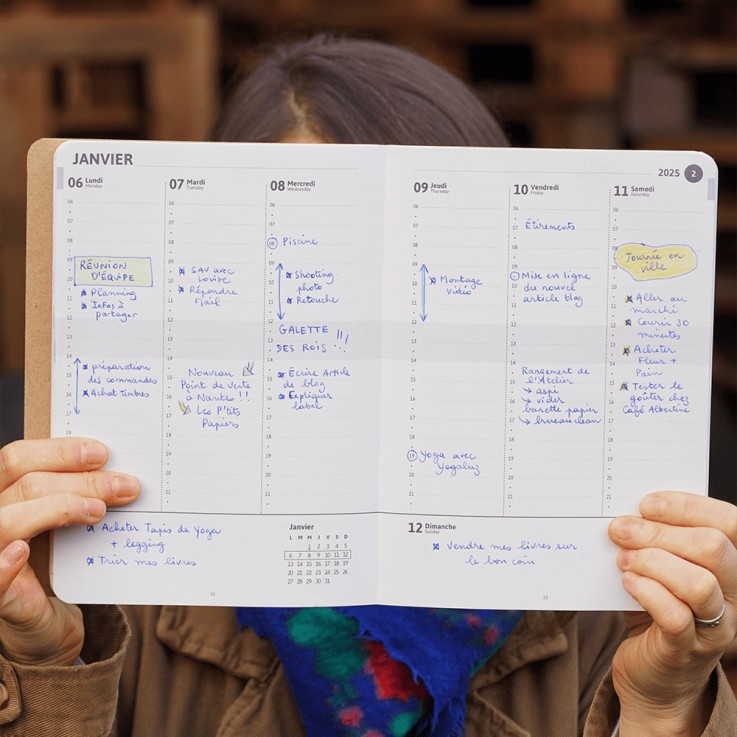 JANVIER
2025 2
06 Lundi
Monday
RÉUNION
D'ÉQUIPE
Planning
Infos à
partager
préparation
des commandes
Achat timbres
07 Mardi
Tuesday
SAV avec
Louise
Répondre
Mail
Nouveau
Point de Vente
à Nantes !!
Les P'tits
Papiers
08 Mercredi
Wednesday
Piscine
Shooting
photo
Retouche
GALETTE
DES ROIS !!!
Écrire Article
de blog
Expliquer
label
09 Jeudi
Thursday
Montage
vidéo
19 Yoga avec
Yogaluz
10 Vendredi
Friday
Étirements
Mise en ligne
du nouvel
article blog
Rangement de
l'Atelier
→ aspi
→ vider
banette papier
→ bureau clean
11 Samedi
Saturday
Journée en
ville
Aller au
marché
Courir 30
minutes
Acheter
Fleur +
Pain
Tester le
goûter chez
Café Albertine
Acheter Tapis de Yoga
+ legging
Trier mes livres
Janvier
L M M J V S D
1 2 3 4 5
6 7 8 9 10 11 12
13 14 15 16 17 18 19
20 21 22 23 24 25 26
27 28 29 30 31
12 Dimanche
Sunday
Vendre mes livres sur
le bon coin